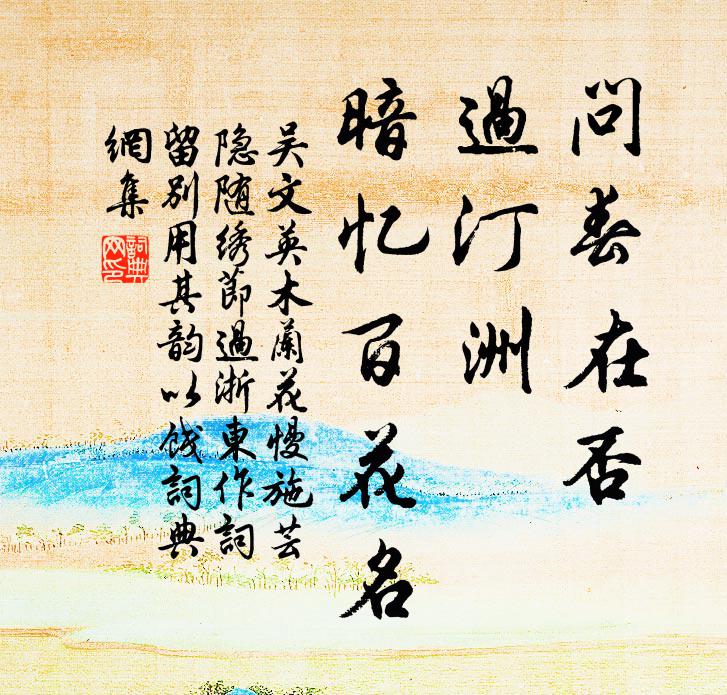 問春在否
過汀洲
暗忆百花名
吴文英木蘭花慢施芸
隐随绣節過淅東作詞
留别用其韵以餞詞典
網集
詞典
网印